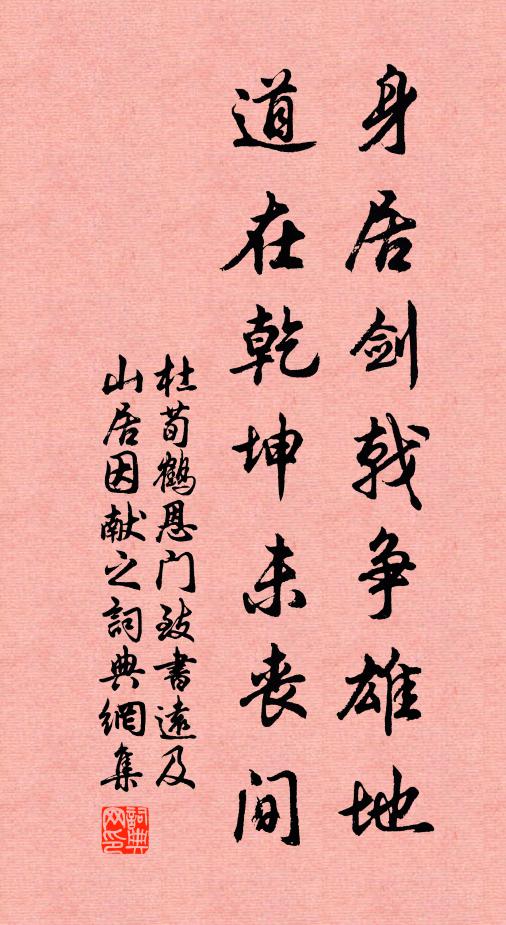 身居剑戟争雄地
道在乾坤未丧间
杜荀鹤恩门致書遠及
山居因献之詞典網集
詞典网印